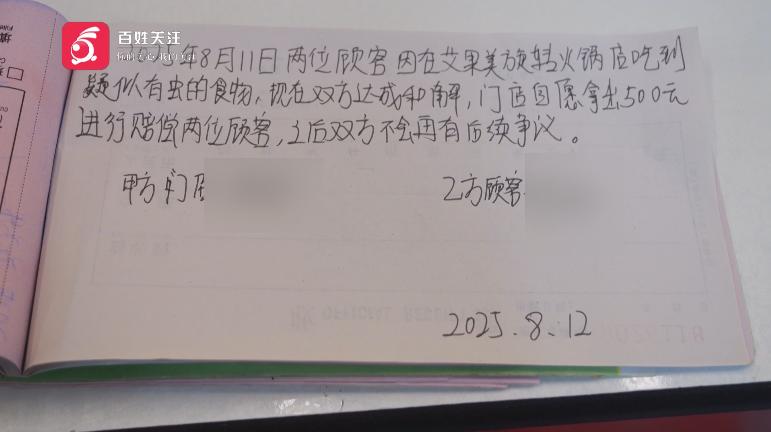 百姓关注
年8月11日两位顾客因在艾果美旋转火锅店吃到
疑似有虫的食物，现在双方达成和解，门店自愿拿出500元
进行赔偿两位顾客，之后双方不会再有后续争议。
甲方门店
乙方顾客
2025.8.12